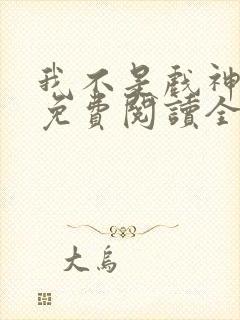 我不是戲神
免費閱讀全
大鳥